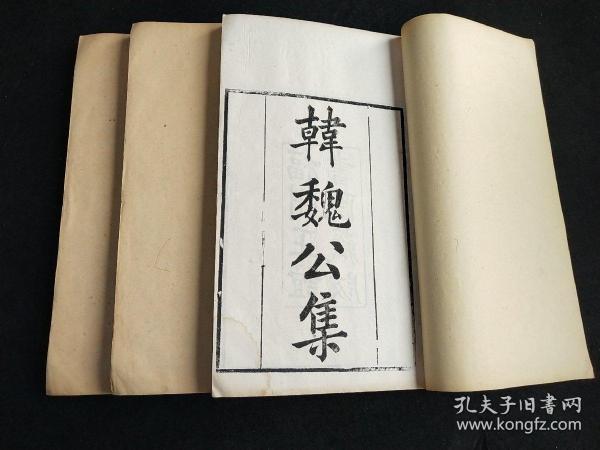 韓魏公集
孔夫子旧书网
www.kongfz.com